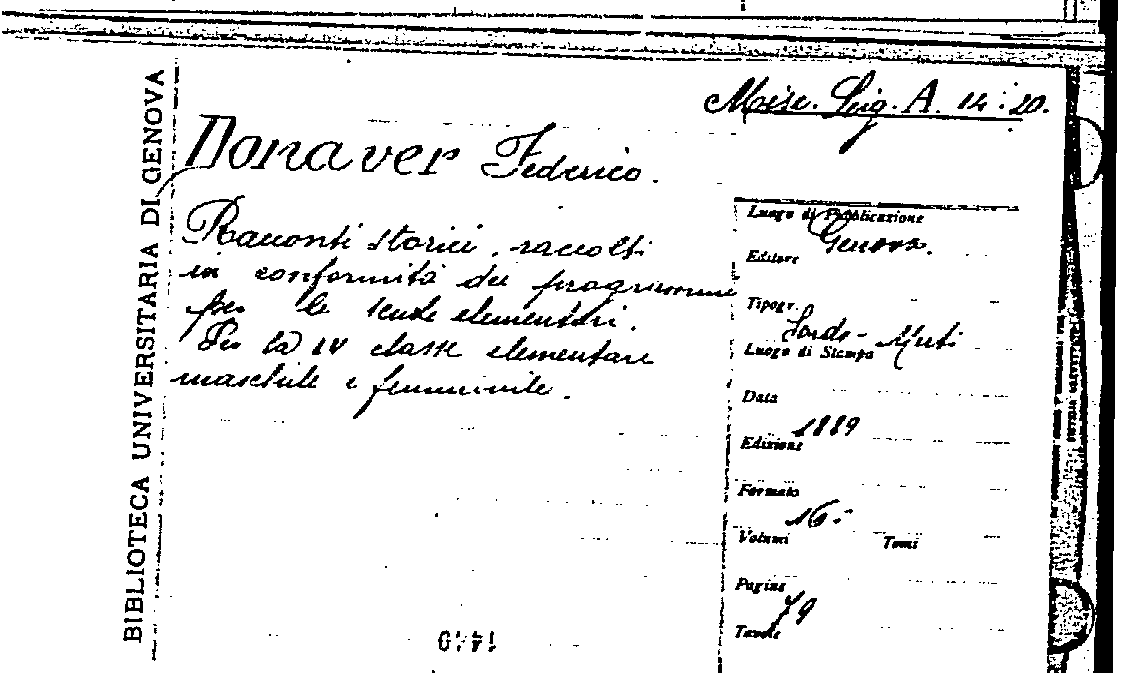 BIBLIOTECA UNIVERSITARIA DI GENOVA
Misc. Lig. A. 14:20.
Donaver Federico.
Racconti storici, raccolti
in conformità dei programmi
per le scuole elementari.
Per la IV classe elementare
maschile e femminile.
Luogo di Pubblicazione
Genova.
Editore
Tipogr.
Sordo-Muti
Luogo di Stampa
Data
1889
Edizione
Formato
16.-
Volumi Tomi
Pagine
79
Tavole